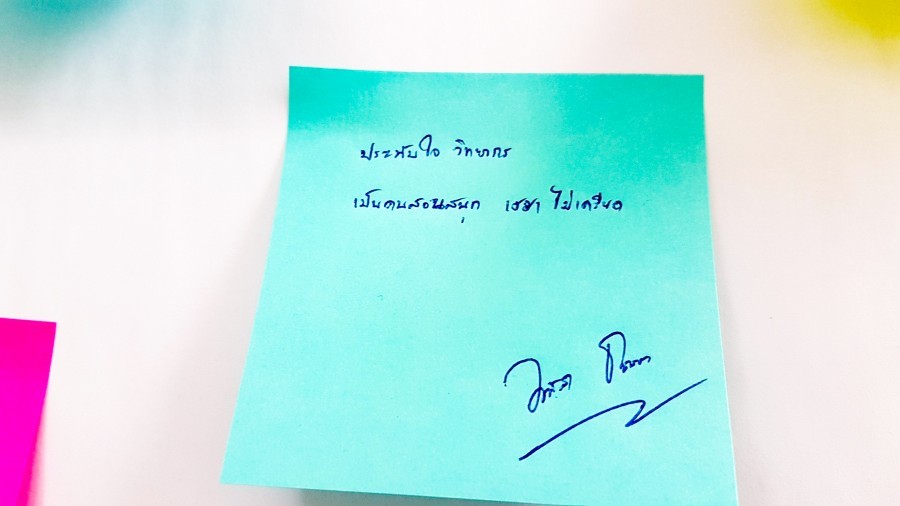 ประทับใจ วิทยากร
เป็นคนสอนสนุก เฮฮา ไม่เครียด